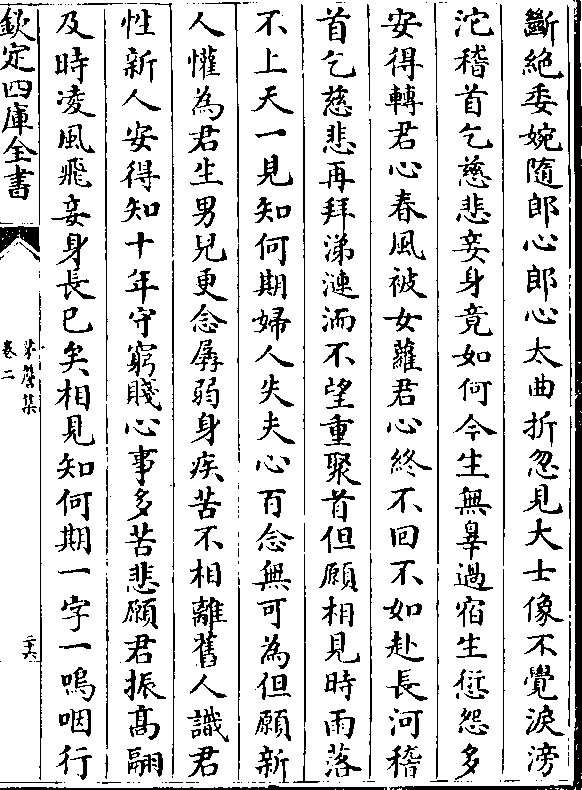 斷絶委婉隨郎心郎心太曲折忽見大士像不覺淚滂
沱稽首乞慈悲妾身竟如何今生無辠過宿生愆怨多
安得轉君心春風被女蘿君心終不回不如赴長河稽
首乞慈悲再拜涕漣洏不望重聚首但願相見時雨落
不上天一見知何期婦人失夫心百念無可為但願新
人懽為君生男兒更念孱弱身疾苦不相離舊人識君
性新人安得知十年守窮賤心事多苦悲願君振高翮
及時凌風飛妾身長已矣相見知何期一字一嗚咽行
欽定四庫全書
卷二
二十六